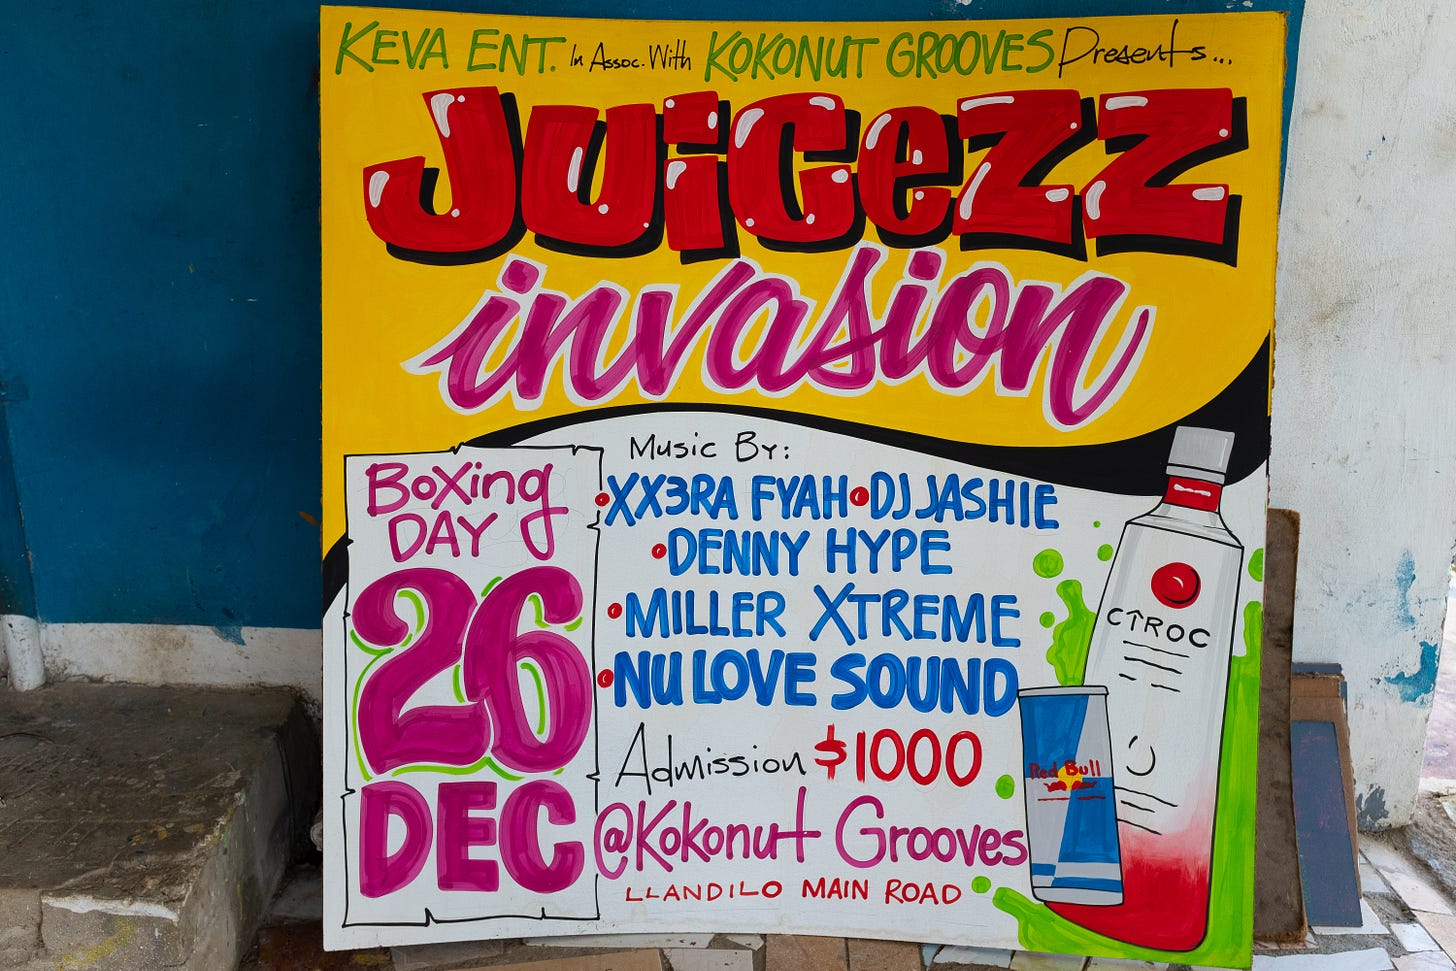 KEVA ENT. In Assoc. With KOKONUT GROOVES Presents...
JUiCeZZ
invasion
Music By:
•XX3RA FYAH•DJ JASHIE
•DENNY HYPE
•MILLER XTREME
•NU LOVE SOUND
Admission $1000
@Kokonut Grooves
LLANDILO MAIN ROAD
BoXing
DAY
26
DEC
CÎROC
Red Bull